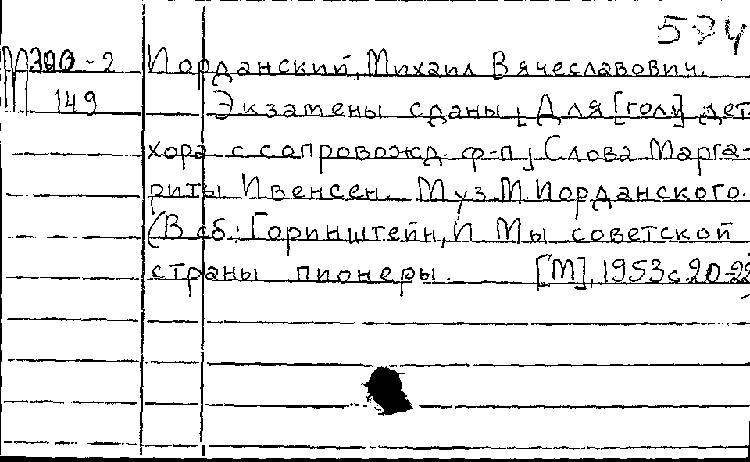 574
М300-2 Иорданский, Михаил Вячеславович.
149 Экзамены сданы; Для [гол] дет
хора с сапровожд ф-п; Слова Марга-
риты Ивенсен. Муз М Иорданского.
(В сб: Горинштейн, И Мы советской
страны пионеры. [М], 1953 с 20-22